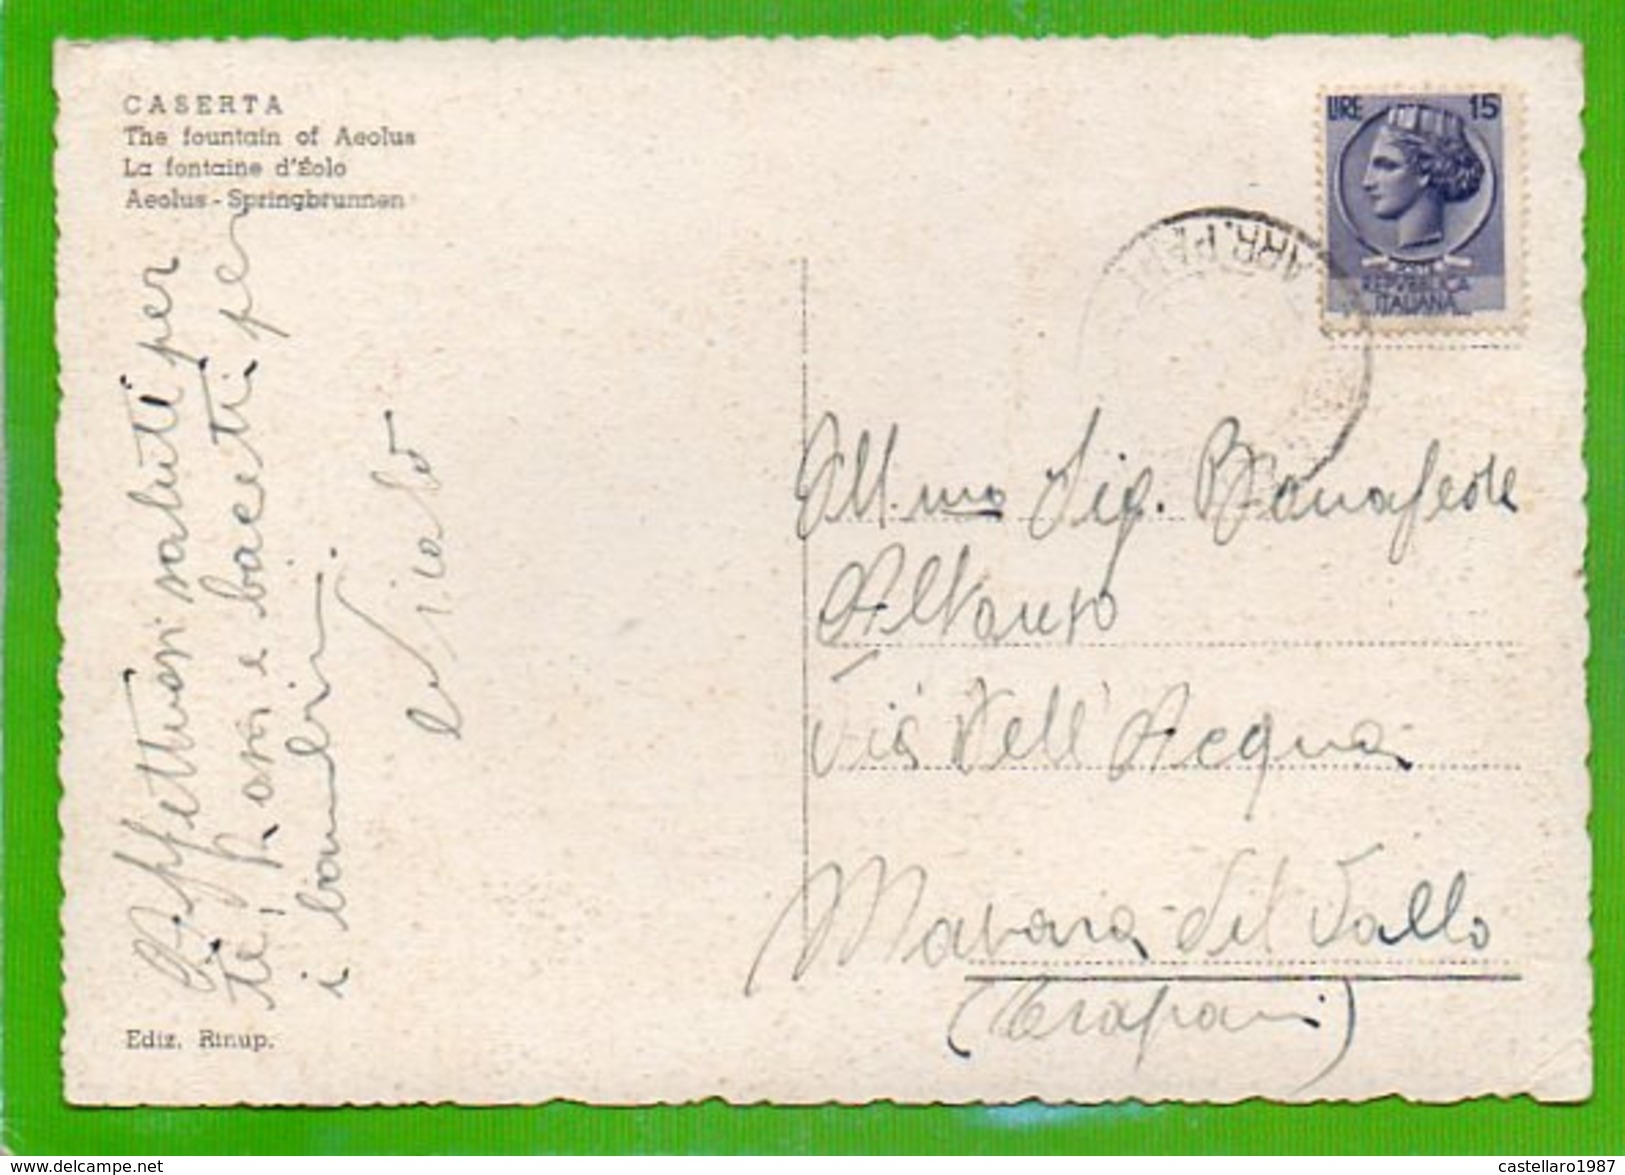 CASERTA
The fountain of Aeolus
La fontaine d'Éolo
Aeolus - Springbrunnen
LIRE 15
REPVBBLICA
ITALIANA
ARR. PA
Affettuosi saluti per
te, Rosi e bacetti per
i bambini.
Nicolò
Ill.mo Sig. Bonafede
Via Dell'Acqua
Mazara del Vallo
(Trapani)
Ediz. Rinup.
www.delcampe.net
castellaro1987